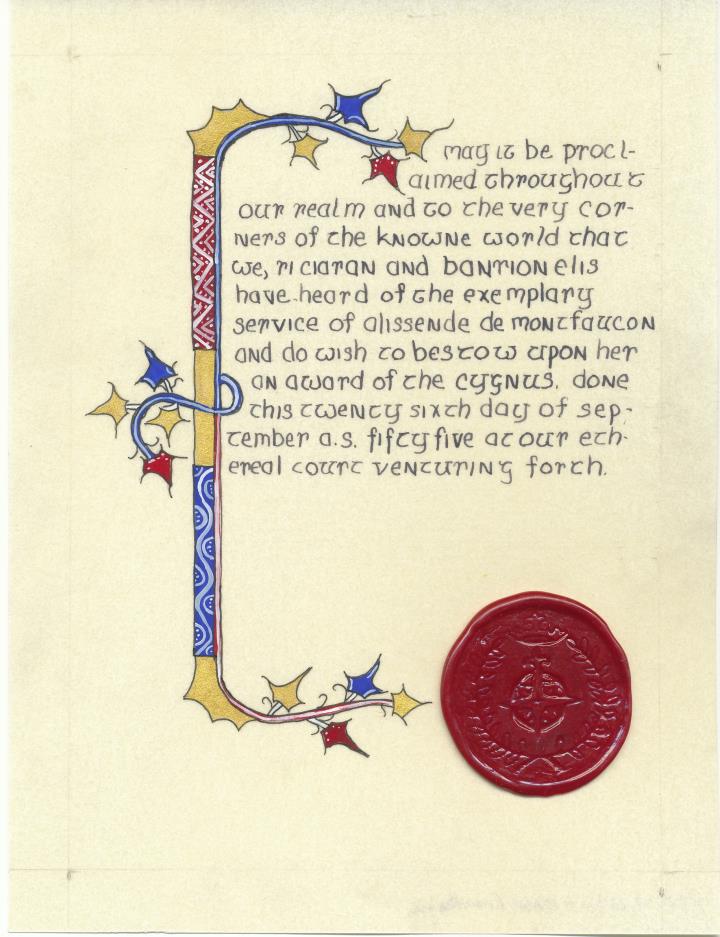 may it be procl-
aimed throughout
our realm and to the very cor-
ners of the knowne world that
we, ri ciaran and banrion elis
have heard of the exemplary
service of alissende de montfaucon
and do wish to bestow upon her
an award of the cygnus. done
this twenty sixth day of sep-
tember a.s. fifty five at our eth-
ereal court venturing forth.